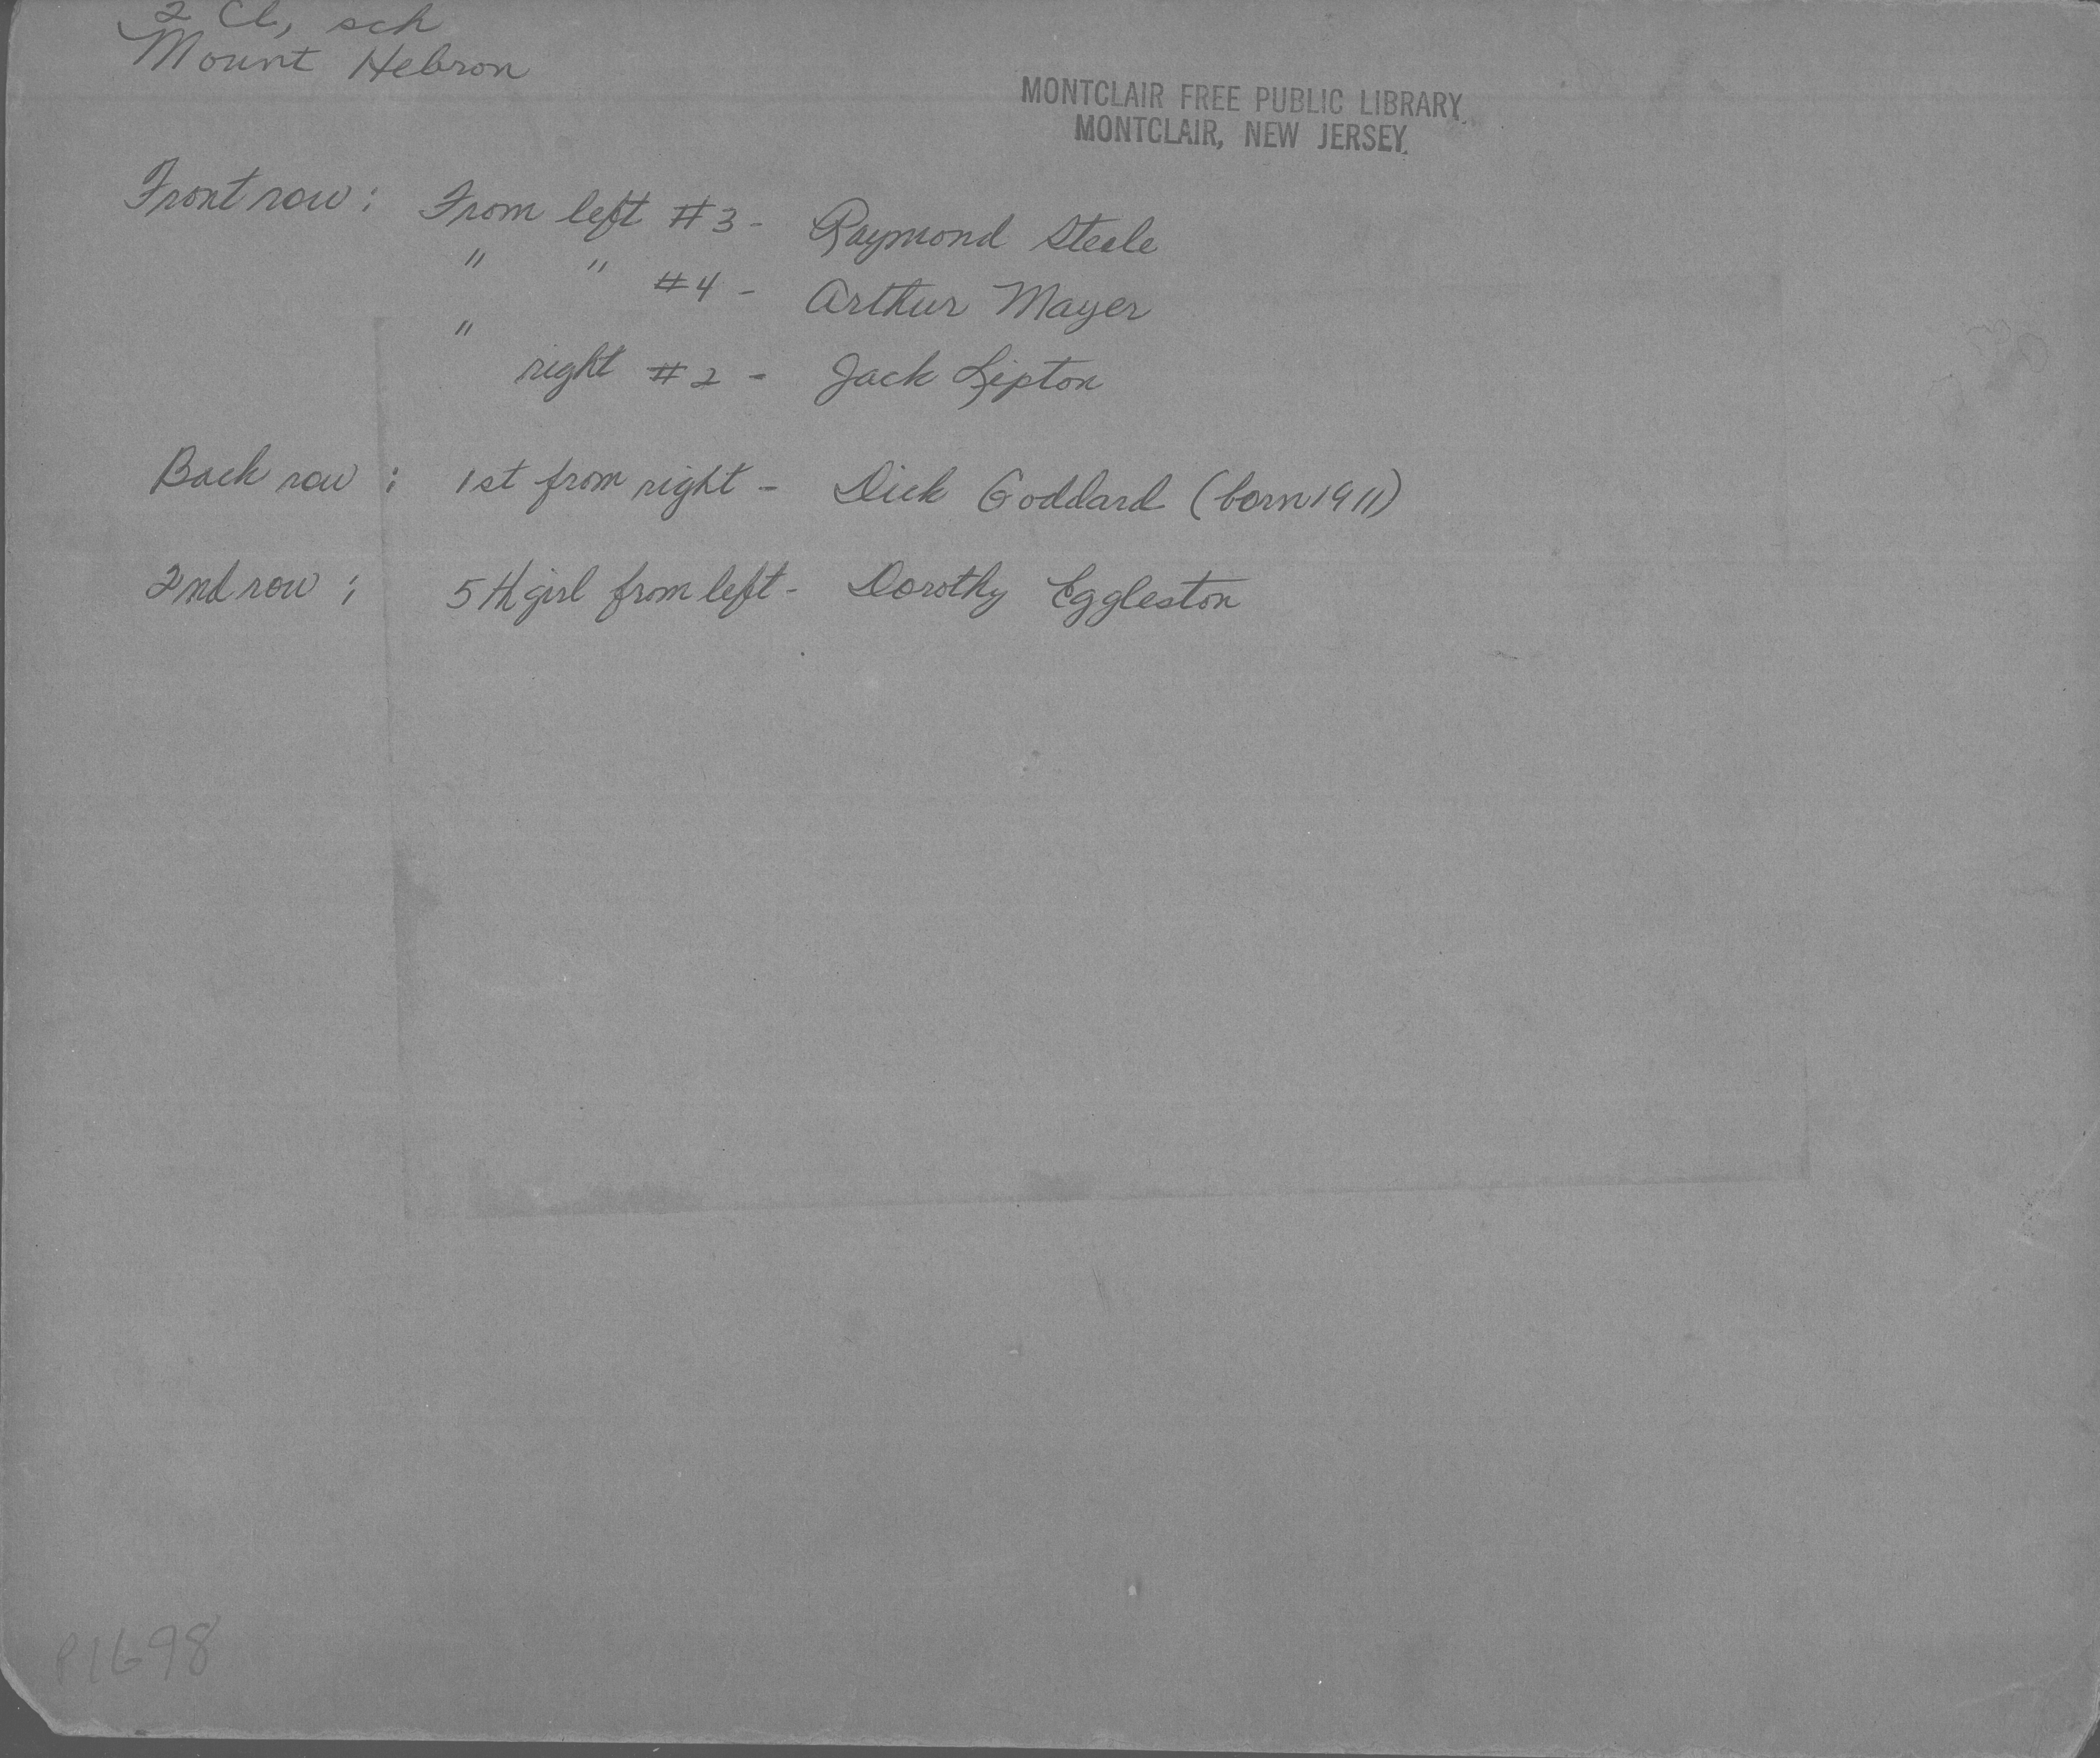 2 Cl, sch
Mount Hebron
MONTCLAIR FREE PUBLIC LIBRARY
MONTCLAIR, NEW JERSEY.
Front row : From left #3 - Raymond Steele
" " #4 - Arthur Mayer
" right #2 - Jack Lipton
Back row : 1st from right - Dick Goddard (born 1911)
2nd row : 5th girl from left - Dorothy Eggleston
P1698